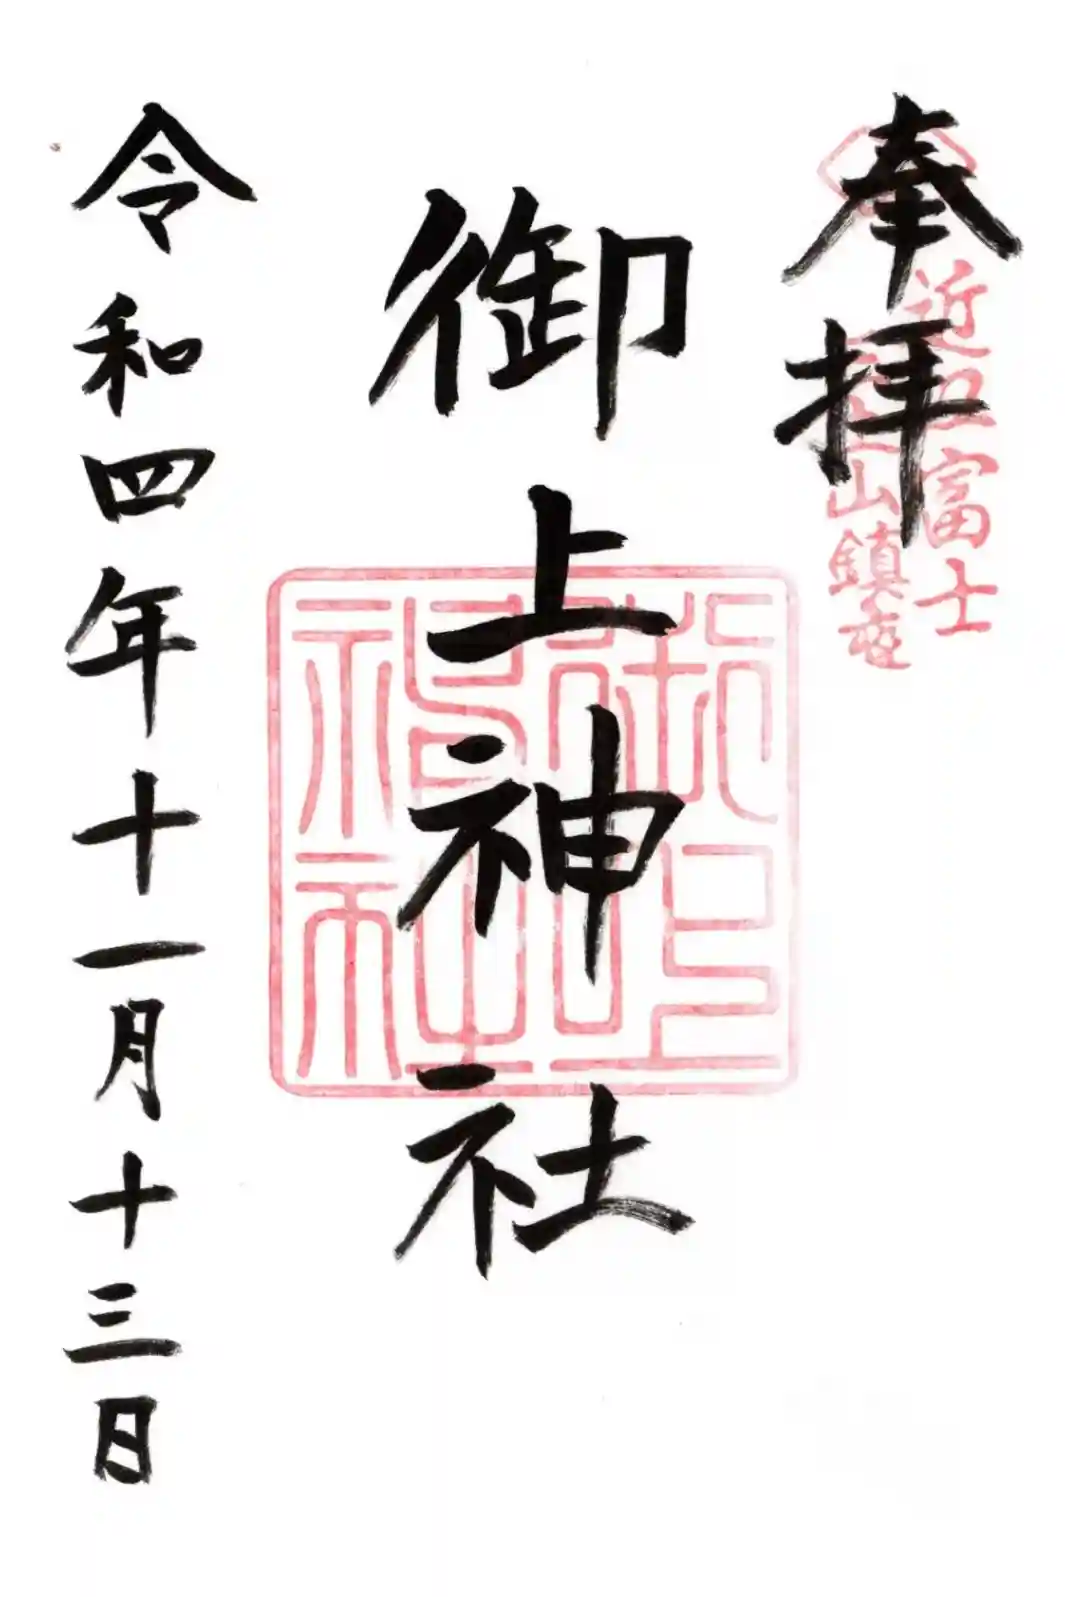 奉拝
近江富士
山鎮座
御上神社
御上神社
令和四年十一月十三日